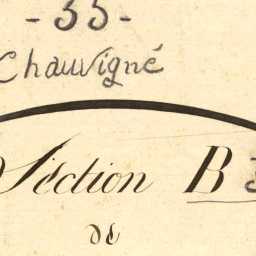 - 35 -
Chauvigné
Section B
de